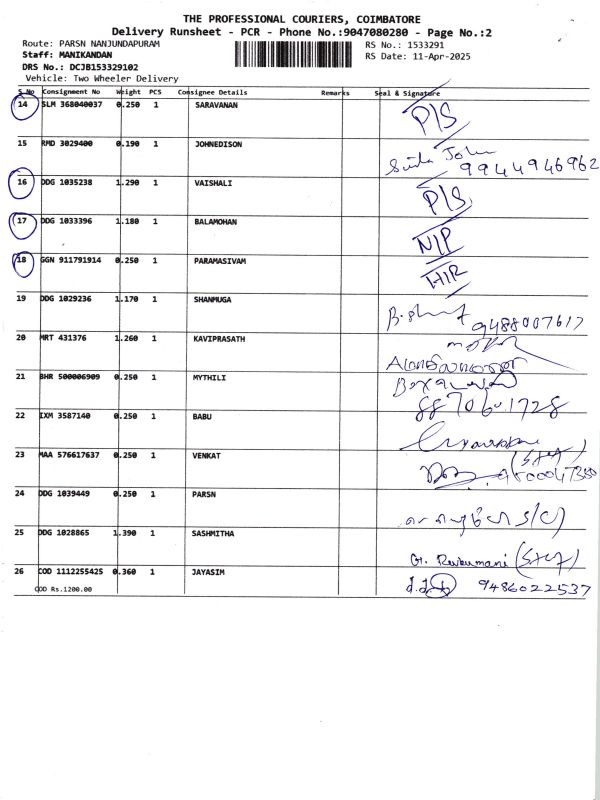 THE PROFESSIONAL COURIERS, COIMBATORE
Delivery Runsheet - PCR - Phone No.:9047080280 - Page No.:2
Route: PARSN NANJUNDAPURAM RS No.: 1533291
Staff: MANIKANDAN RS Date: 11-Apr-2025
DRS No.: DCJB153329102
Vehicle: Two Wheeler Delivery
S No Consignment No Weight PCS Consignee Details Remarks Seal & Signature
14 SLM 368040037 0.250 1 SARAVANAN P/S
15 RMD 3029400 0.190 1 JOHNEDISON
9944946962
16 DDG 1035238 1.290 1 VAISHALI P/S
17 DDG 1033396 1.180 1 BALAMOHAN N/P
18 GGN 911791914 0.250 1 PARAMASIVAM H/R
19 DDG 1029236 1.170 1 SHANMUGA
9488007617
20 MRT 431376 1.260 1 KAVIPRASATH
21 BHR 500006909 0.250 1 MYTHILI
22 IXM 3587140 0.250 1 BABU
23 MAA 576617637 0.250 1 VENKAT
24 DDG 1039449 0.250 1 PARSN
25 DDG 1028865 1.390 1 SASHMITHA
G. Rukumani
26 COD 1112255425 0.360 1 JAYASIM
9486022537
COD Rs.1200.00